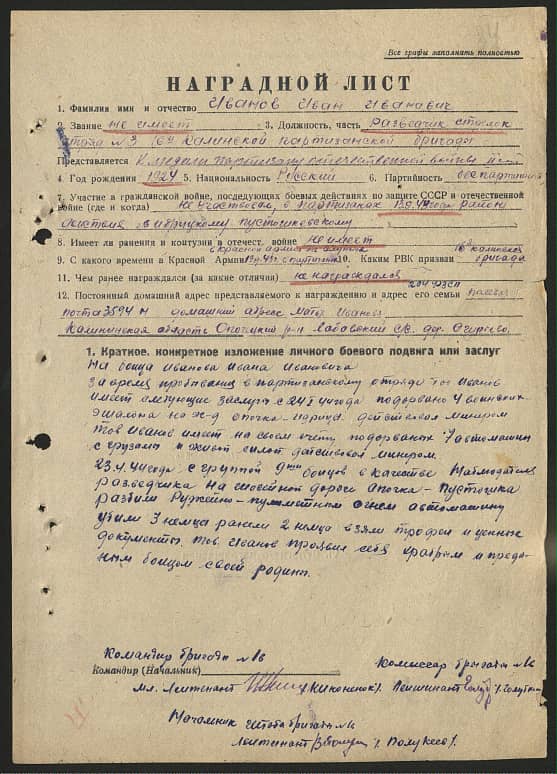 Все графы заполнять полностью
НАГРАДНОЙ ЛИСТ
1. Фамилия имя и отчество Иванов Иван Иванович
2. Звание не имеет 3. Должность, часть Разведчик
№3 16й Калинской партизанской бригады
Представляется К медали партизану отечественной войны
4. Год рождения 1924 5. Национальность Русский 6. Партийность беспартийный
7. Участие в гражданской войне, последующих боевых действиях по защите СССР и отечественной
войне (где и когда) не участвовал, в партизанах район
действия Пустошковскому
8. Имеет ли ранения и контузии в отечест. войне не имеет
9. С какого времени в Красной Армии 10. Каким РВК призван бригада
11. Чем ранее награждался (за какие отличия) не награждался
12. Постоянный домашний адрес представляемого к награждению и адрес его семьи полевая
почта домашний адрес мать Иванова
Калининская область Опочецкий р-н
1. Краткое. конкретное изложение личного боевого подвига или заслуг
На бойца Иванова Ивана Ивановича
За время пребывания в партизанскому отряду тов Иванов
имеет следующие заслуги с 24 44 года подорвано 4 воинских
эшалона на ж-д опочка-идрица. действовал минером
Тов Иванов имеет на своем счету подорваных 7 автомашин
с грузами и живой силой действовал минером.
23.4.44 года с группой 9 бойцов в качестве наблюдателя
разведчика на шоссейной дороги Опочка - Пустошка
разбили Ружейно-пулеметным огнем автомашину
убили 3 немца ранели 2 немца взяли трофеи и ценные
документы. тов. Иванов проявил себя храбрым и преда-
ным бойцом своей родины.
Командир бригады №16 Комиссар бригады №16
Командир (Начальник)
Мл. Лейтенант Лейтинант
Начальник штаба бригады №16
Лейтенант